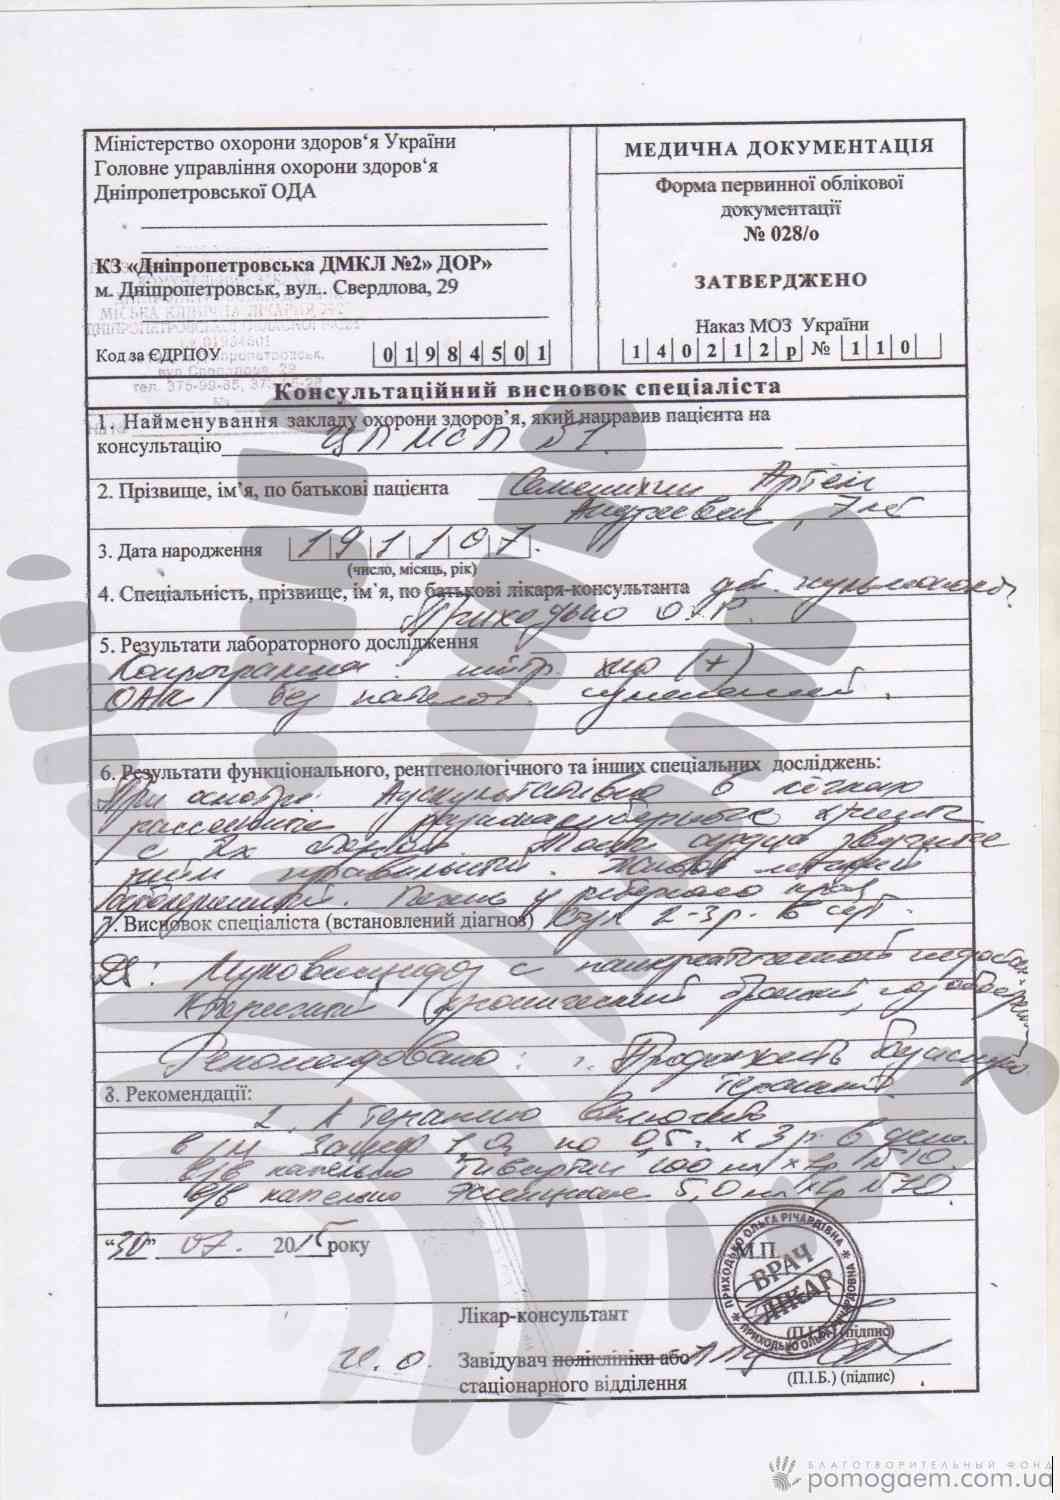 Міністерство охорони здоров'я України
Головне управління охорони здоров'я
Дніпропетровської ОДА
КЗ «Дніпропетровська ДМКЛ №2» ДОР»
м. Дніпропетровськ, вул.. Свердлова, 29
Код за ЄДРПОУ 01984501
МЕДИЧНА ДОКУМЕНТАЦІЯ
Форма первинної облікової
документації
№ 028/о
ЗАТВЕРДЖЕНО
Наказ МОЗ України
140212р № 110
Консультаційний висновок спеціаліста
1. Найменування закладу охорони здоров'я, який направив пацієнта на
консультацію ЦПМСП №1.
2. Прізвище, ім'я, по батькові пацієнта Артем
Андреевич, 7 лет
3. Дата народження 191107.
(число, місяць, рік)
4. Спеціальність, прізвище, ім'я, по батькові лікаря-консультанта
Приходько О.Р.
5. Результати лабораторного дослідження
Копрограмма: нейтр. жир (+)
ОАК без патолог. изменений.
6. Результати функціонального, рентгенологічного та інших спеціальних досліджень:
При осмотре: Аускультативно в легких
рассеянные разнокалиберные хрипы
с 2х сторон. Тоны сердца звучные
ритм правильный. Живот мягкий
безболезненный. Печень у реберного края
7. Висновок спеціаліста (встановлений діагноз) Стул 2-3 р. в сут.
Ds: Муковисцидоз с панкреатической недостаточ.
хронический бронхит,
Рекомендовано: 1. Продолжать базисную
терапию
8. Рекомендації:
2. К терапии включить
в/м 1,0 по 0,5 г. х 3 р. в день
в/в капельно Тивортин 100 мл х 1р №10.
в/в капельно Эссенциале 5,0 мл х 1р №10.
"30" 07. 2015 року
М.П.
ВРАЧ
ЛІКАР
ПРИХОДЬКО ОЛЬГА РІЧАРДІВНА
ПРИХОДЬКО ОЛЬГА РИЧАРДОВНА
Лікар-консультант
(П.І.Б.) (підпис)
и.о. Завідувач поліклініки або
стаціонарного відділення
(П.І.Б.) (підпис)
БЛАГОТВОРИТЕЛЬНЫЙ ФОНД
pomogaem.com.ua